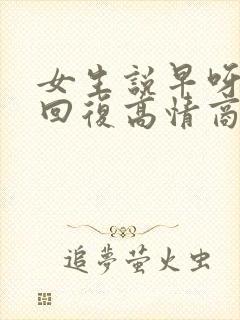 女生說早呀
回復高情商
追夢萤火虫